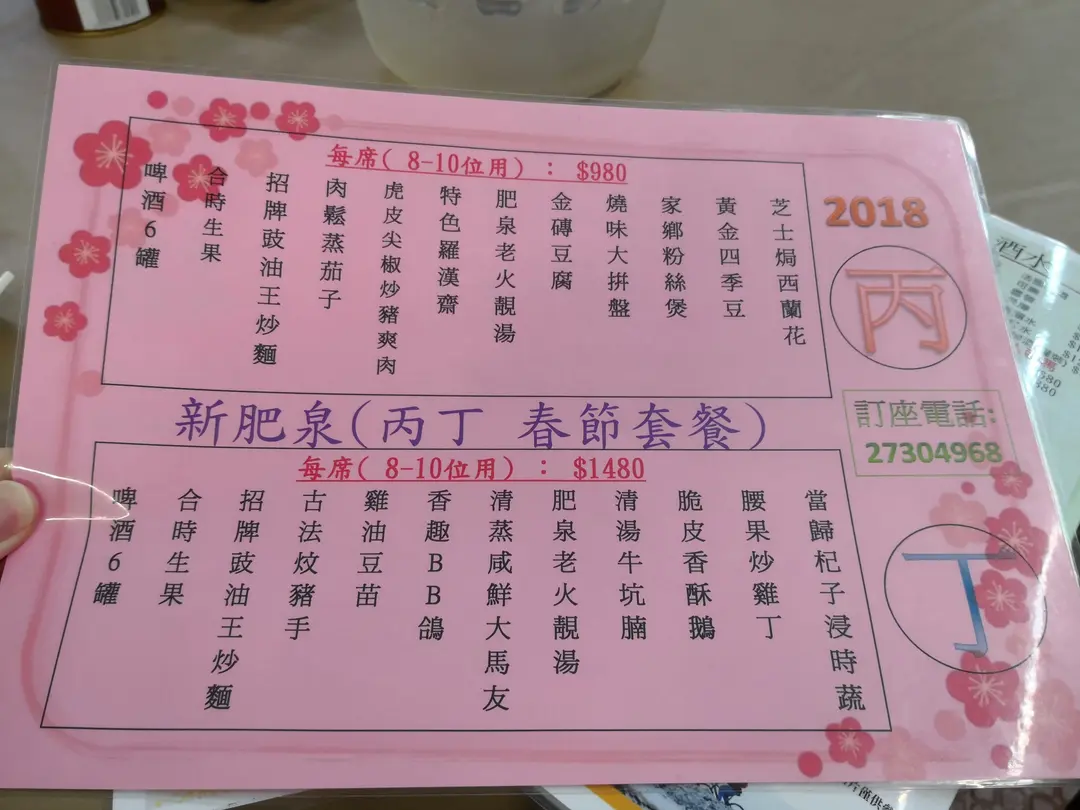 2018
丙
每席( 8-10位用) : $980
芝士焗西蘭花
黃金四季豆
家鄉粉絲煲
燒味大拼盤
金磚豆腐
肥泉老火靚湯
特色羅漢齋
虎皮尖椒炒豬爽肉
肉鬆蒸茄子
招牌豉油王炒麵
合時生果
啤酒6罐
新肥泉(丙丁 春節套餐)
訂座電話:
27304968
丁
每席( 8-10位用) : $1480
當歸杞子浸時蔬
腰果炒雞丁
脆皮香酥鵝
清湯牛坑腩
肥泉老火靚湯
清蒸咸鮮大馬友
香趣BB鴿
雞油豆苗
古法炆豬手
招牌豉油王炒麵
合時生果
啤酒6罐
酒水